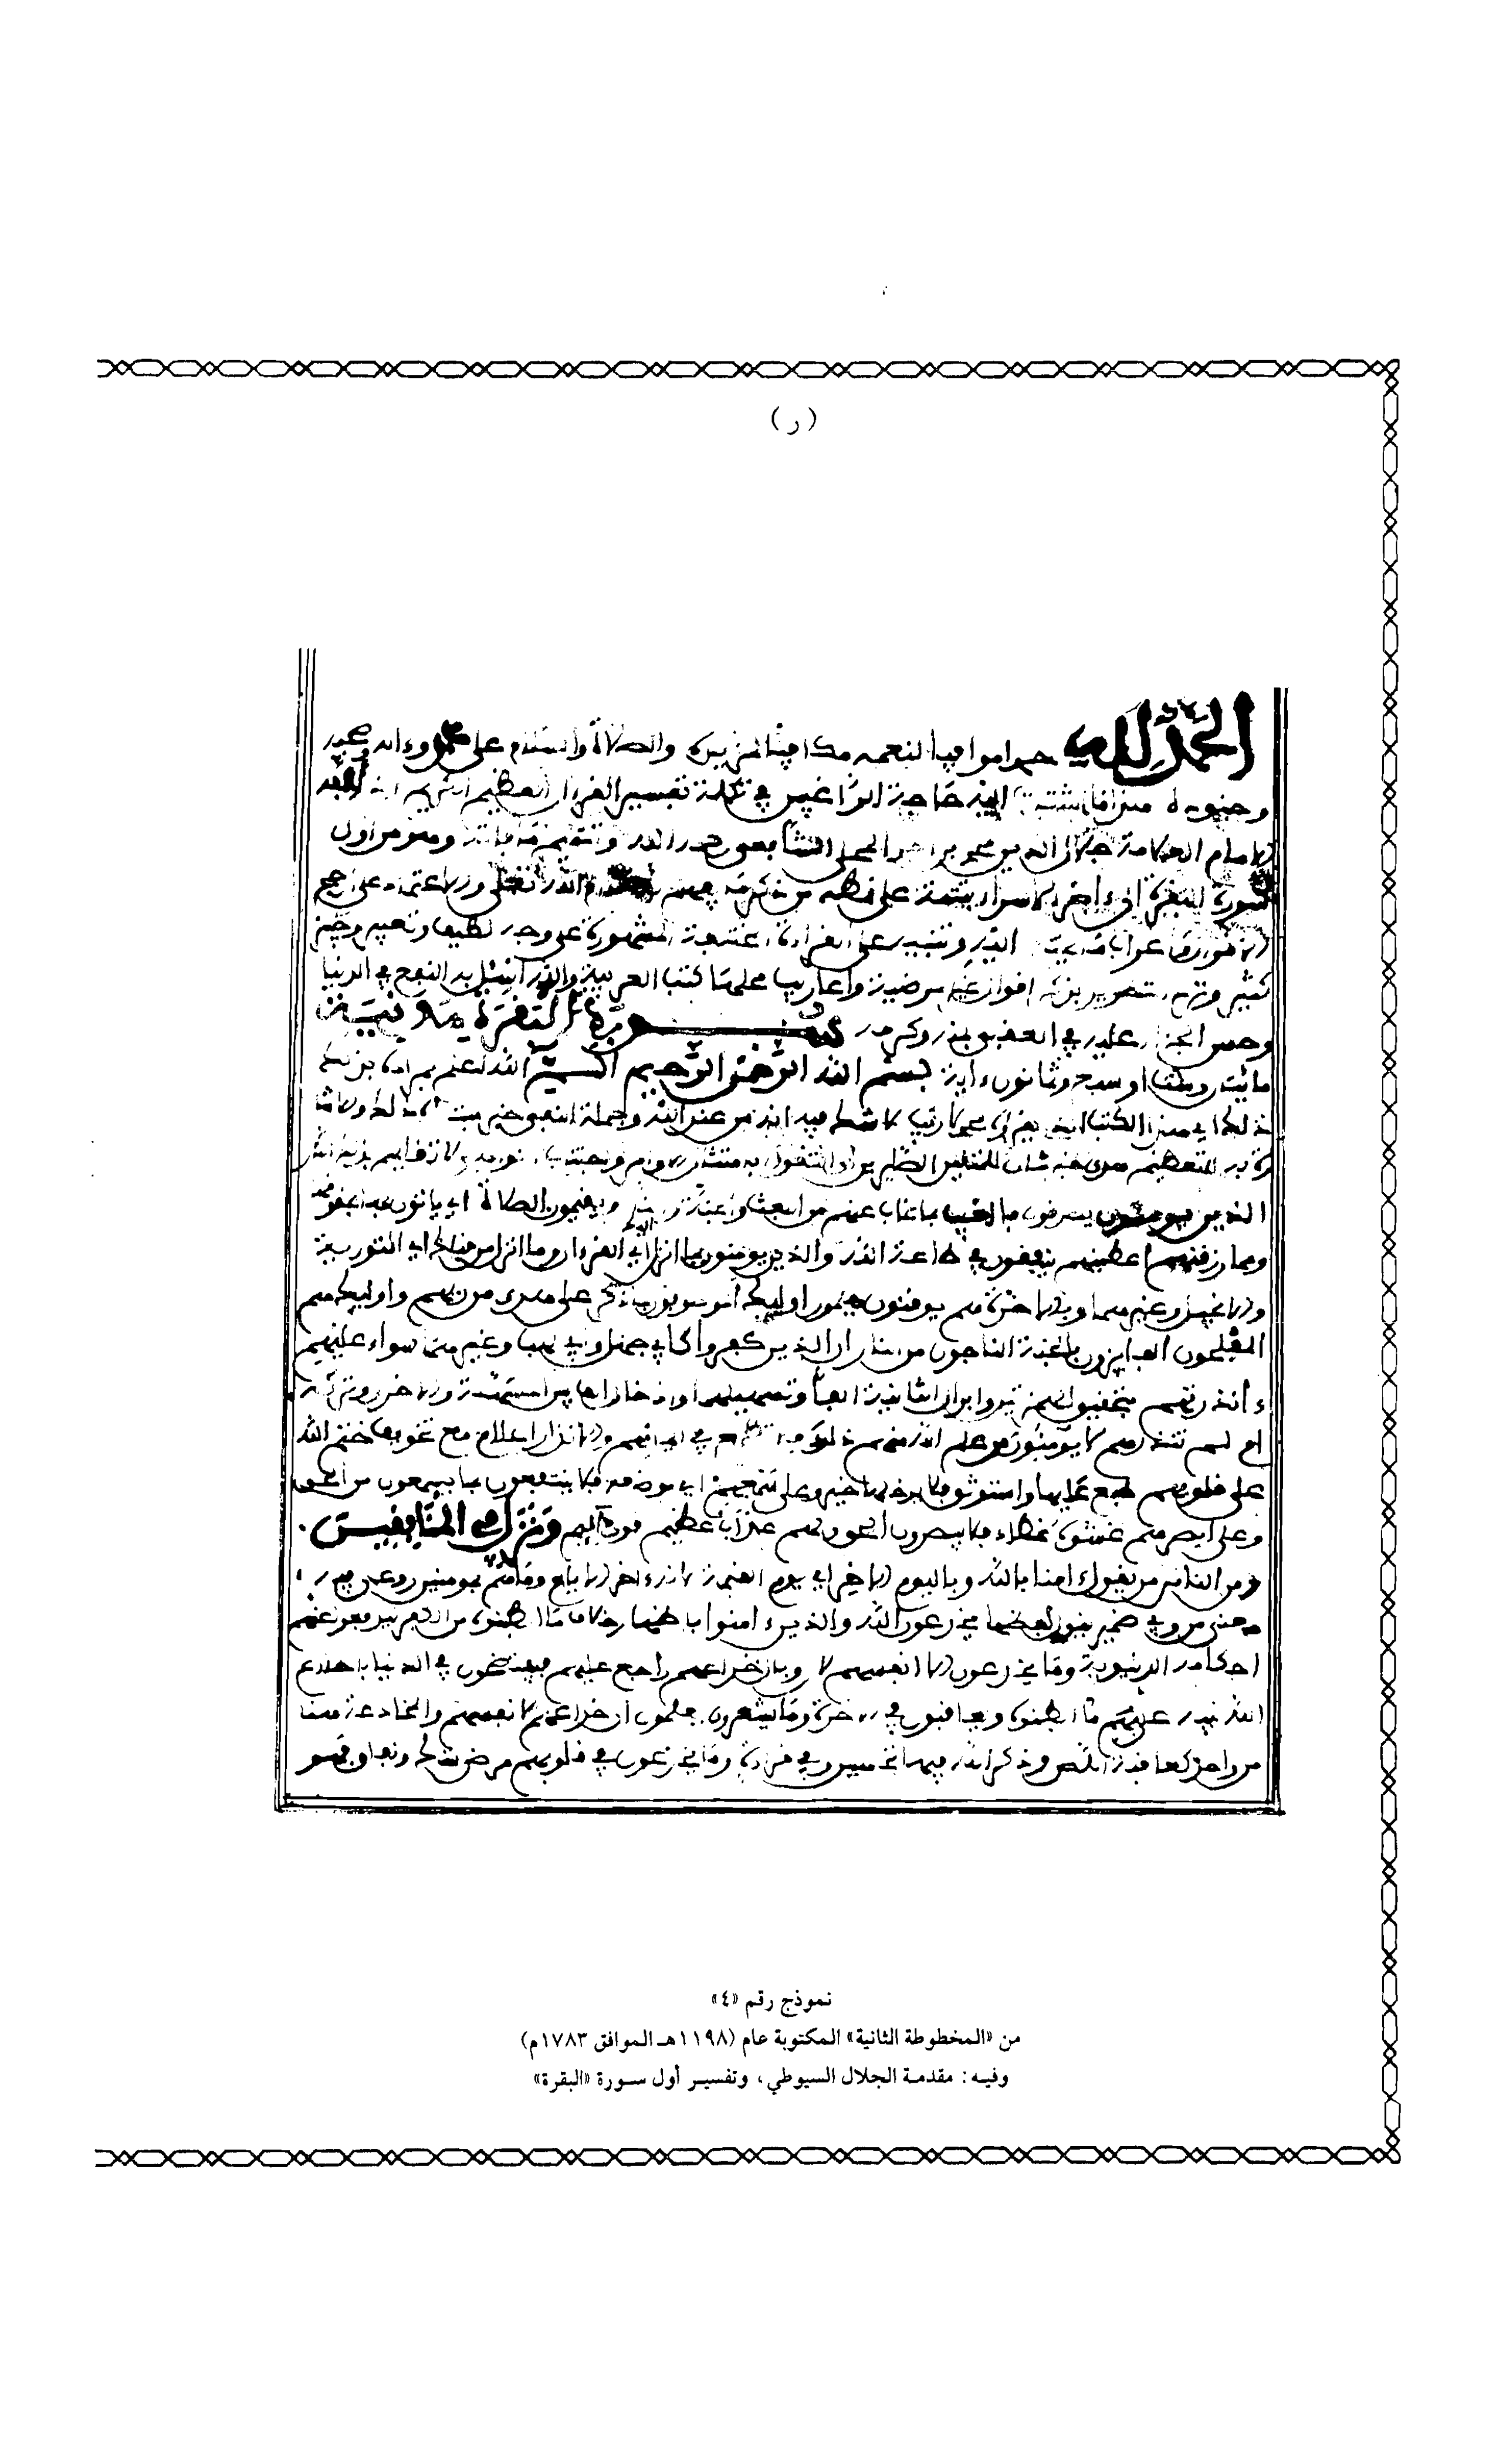 الحمد لله حمدا موافيا لنعمه مكافيا لمزيده والصلاة والسلام على محمد وءاله وصحبه
وجنوده هذا ما اشتدت اليه حاجة الراغبين في تكملة تفسير القرءان العظيم الكريم الذي الفه
الامام العلامة جلال الدين محمد بن احمد المحلي الشافعي رحمه الله وتتميم ما فاته وهو من اول
سورة البقرة الى ءاخر الاسراء بتتمة على نمطه من ذكر ما يفهم به الله تعلى والاعتماد على ارجح
الاقوال واعراب ما يحتاج اليه وتنبيه على القراءات المشهورة على وجه لطيف وتعبير وجيز
بذكر اقوال غير مرضية واعاريب محلها كتب العربية والله اسئل به النفع في الدنيا
وحسن الجزاء عليه في العقبى بمنه وكرمه سورة البقرة مدنية
مائتان وست او سبع وثمانون ءاية بسم الله الرحمن الرحيم الم الله اعلم بمراده بذلك
ذلك اي هذا الكتب الذي يقرؤه محمد لا ريب لا شك فيه انه من عند الله وجملة النفي خبر مبتدؤه ذلك والاشا
رة به للتعظيم هدى خبر ثان للمتقين الصائرين الى التقوى بامتثال الاوامر واجتناب النواهي لاتقائهم بذلك النار
الذين يومنون يصدقون بالغيب بما غاب عنهم من البعث والجنة والنار ويقيمون الصلاة اي ياتون بها بحقوقها
ومما رزقنهم اعطينهم ينفقون في طاعة الله والذين يومنون بما انزل اليك اي القرءان وما انزل من قبلك اي التورية
والانجيل وغيرهما وبالاخرة هم يوقنون يعلمون اوليك الموصوفون بما ذكر على هدى من ربهم واوليك هم
المفلحون الفايزون بالجنة الناجون من النار ان الذين كفروا كابي جهل وابي لهب وغيرهما سواء عليهم
ءانذرتهم بتحقيق الهمزتين وابدال الثانية الفا وتسهيلها وادخال الف بين المسهلة والاخرى وتركه
ام لم تنذرهم لا يومنون لعلم الله منهم ذلك فلا تطمع في ايمانهم والانذار اعلام مع تخويف ختم الله
على قلوبهم طبع عليها واستوثق فلا يدخلها خير وعلى سمعهم اي مواضعه فلا ينتفعون بما يسمعون من الحق
وعلى ابصرهم غشوة غطاء فلا يبصرون الحق ولهم عذاب عظيم قوي دائم ونزل في المنافقين
ومن الناس من يقول ءامنا بالله وباليوم الاخر اي يوم القيمة لانه ءاخر الايام وما هم بمومنين روعي فيه
معنى من وفي ضمير يقول لفظها يخدعون الله والذين ءامنوا باظهار خلاف ما ابطنوه من الكفر ليدفعوا عنهم
احكامه الدنيوية وما يخدعون الا انفسهم لان وبال خداعهم راجع عليهم فيفتضحون في الدنيا باطلاع
الله نبيه عليهم ما ابطنوه ويعاقبون في الاخرة وما يشعرون يعلمون ان خداعهم لانفسهم والمخادعة هنا
من واحد كعاقبت اللص وذكر الله فيها تحسين وفي قراءة وما يخدعون في قلوبهم مرض شك ونفاق فهو
(ر)
نموذج رقم «٤»
من «المخطوطة الثانية» المكتوبة عام (١١٩٨هـ الموافق ١٧٨٣م)
وفيه: مقدمة الجلال السيوطي، وتفسير أول سورة «البقرة»